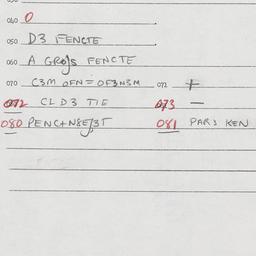 040 0
050 D3 FENCTE
060 A GROJS FENCTE
070 C3M OFN = OF3N3M 072 +
072 CL D3 TIE 073 —
080 081 PARS KEN